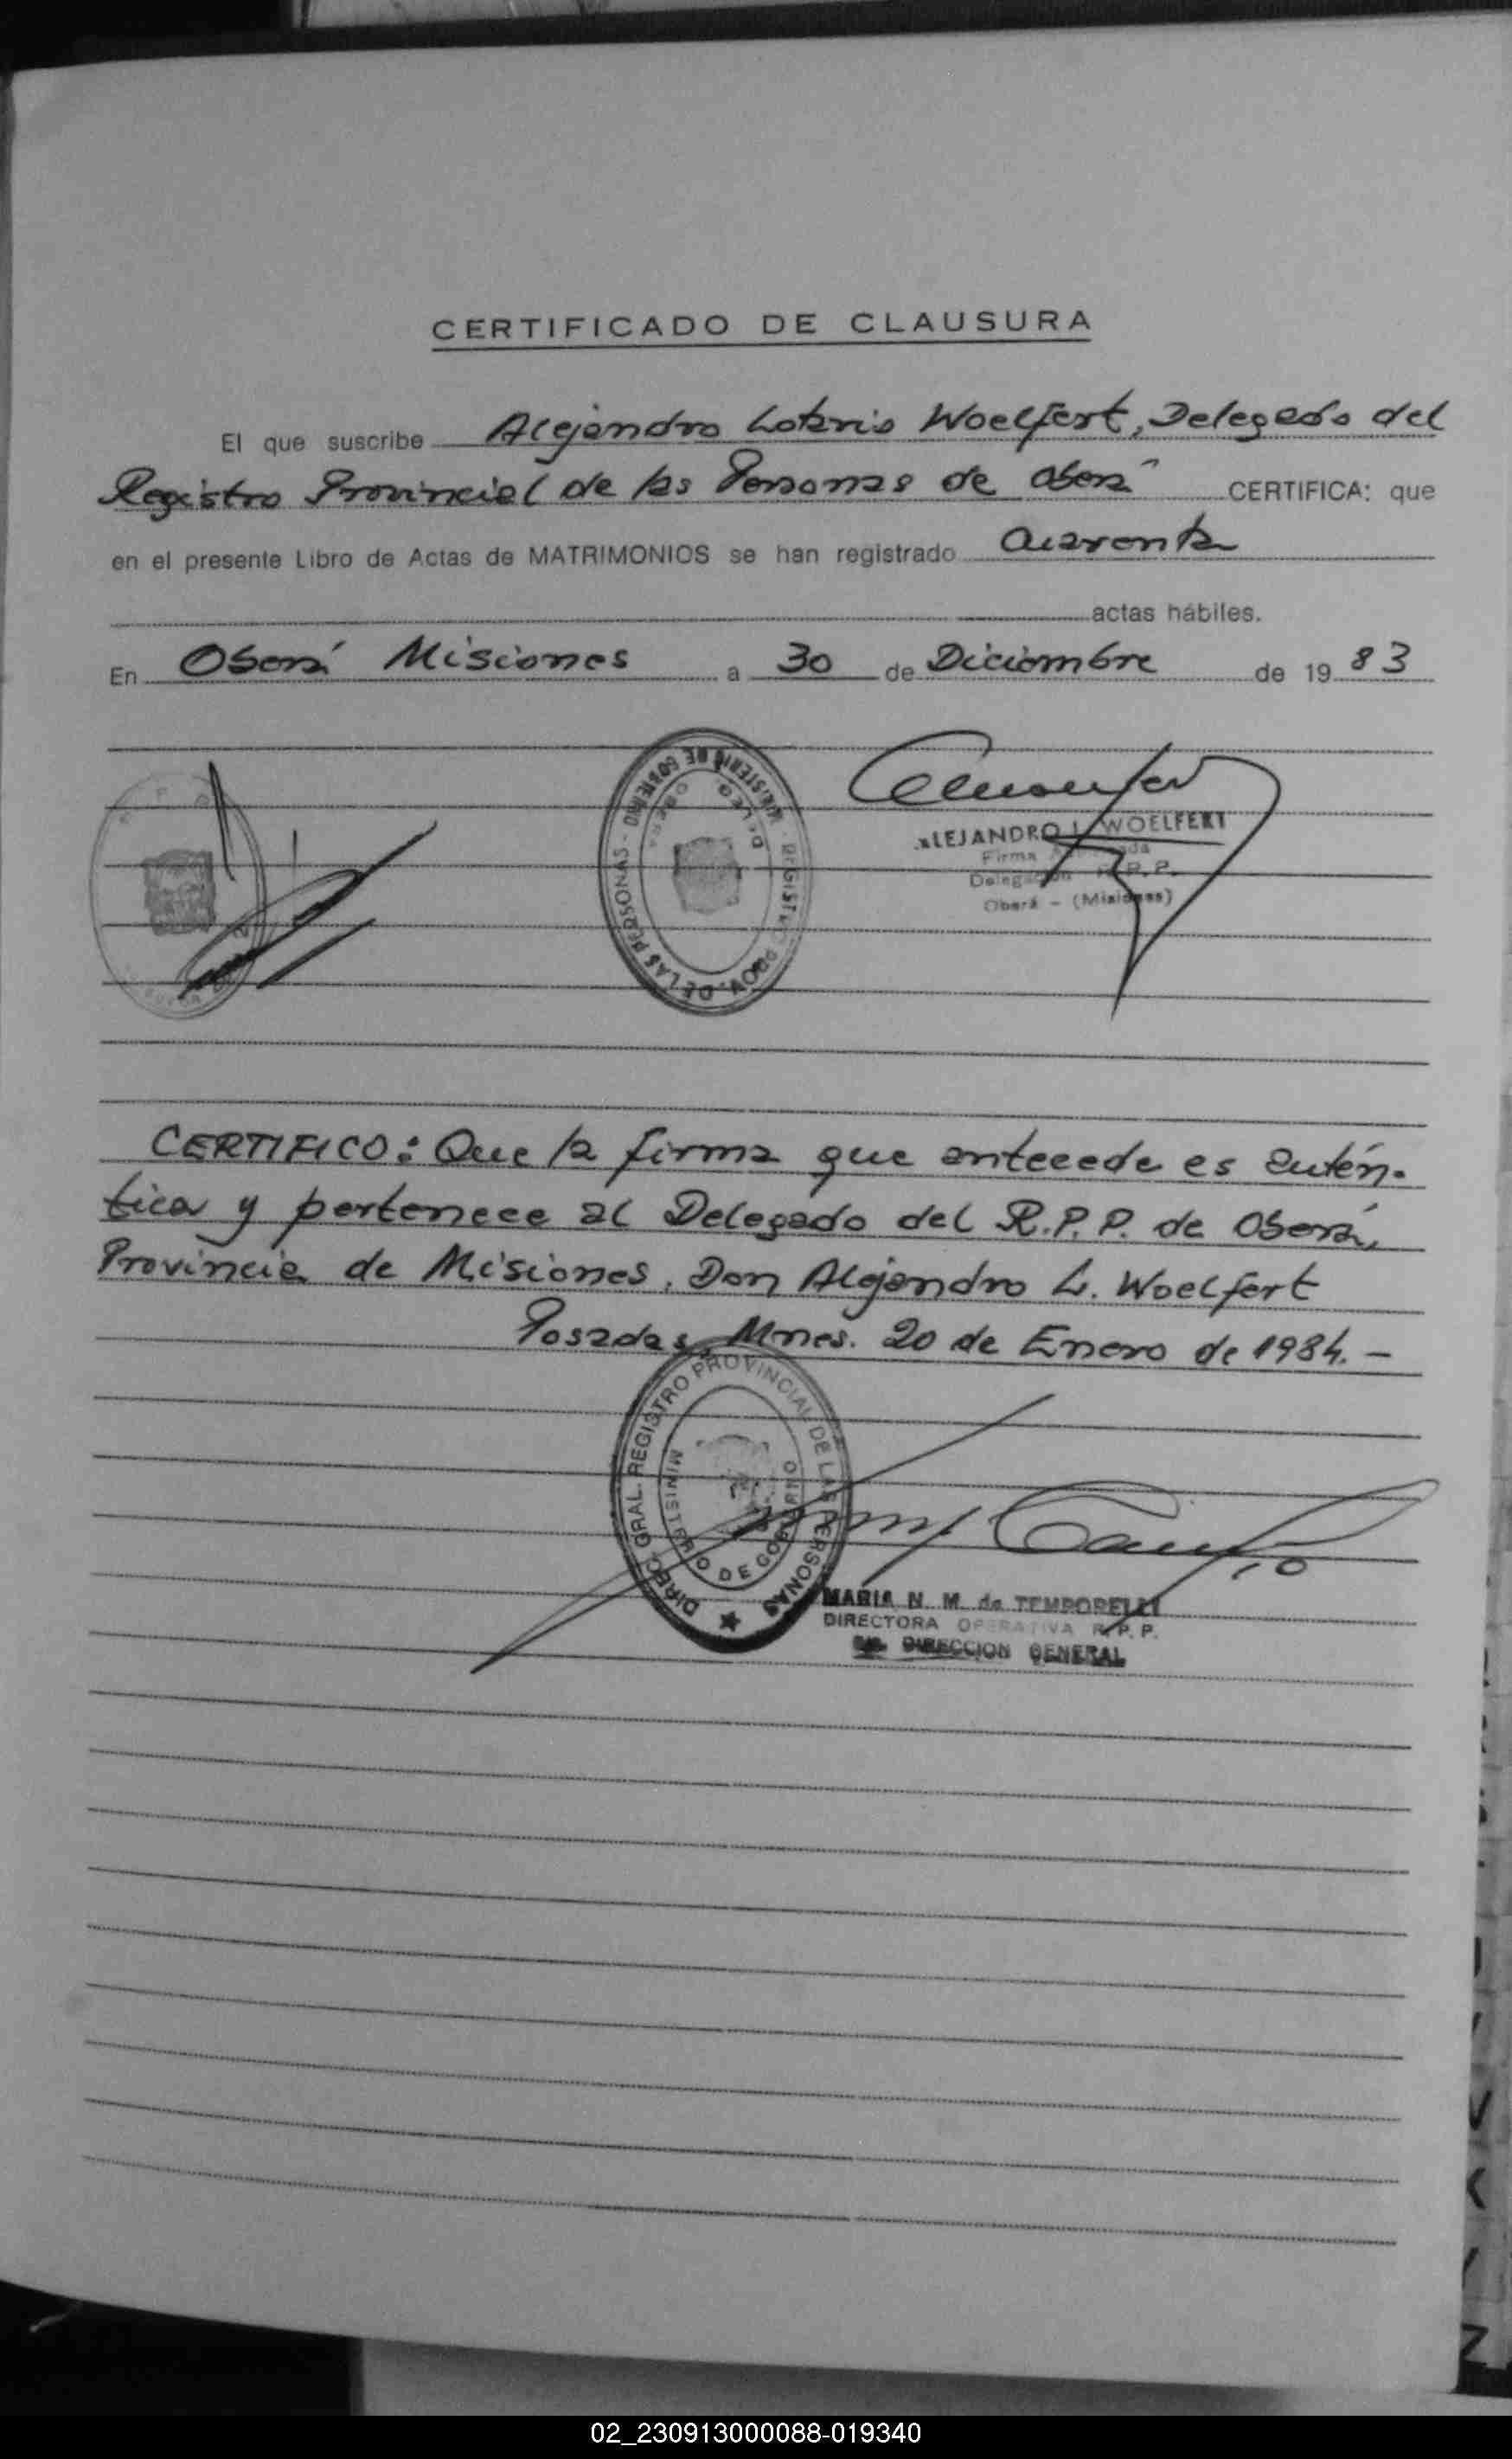 CERTIFICADO DE CLAUSURA
El que suscribe Alejandro Lotario Woelfert, Delegado del
Registro Provincial de las Personas de Oberá CERTIFICA: que
en el presente Libro de Actas de MATRIMONIOS se han registrado cuarenta
actas hábiles.
En Oberá Misiones a 30 de Diciembre de 19 83
MINISTERIO DE GOBIERNO - REGISTRO PROV. DE LAS PERSONAS -
DELEG. OBERA
ALEJANDRO L. WOELFERT
Firma Autorizada
Delegación R.P.P.
Oberá - (Misiones)
CERTIFICO: Que la firma que antecede es autén-
tica y pertenece al Delegado del R.P.P. de Oberá,
Provincia de Misiones, Don Alejandro L. Woelfert
Posadas, Mnes. 20 de Enero de 1984. -
DIREC. GRAL. REGISTRO PROVINCIAL DE LAS PERSONAS
MINISTERIO DE GOBIERNO
MARIA N. M. de TEMPORELLI
DIRECTORA OPERATIVA R. P. P.
DIRECCION GENERAL
02_230913000088-019340